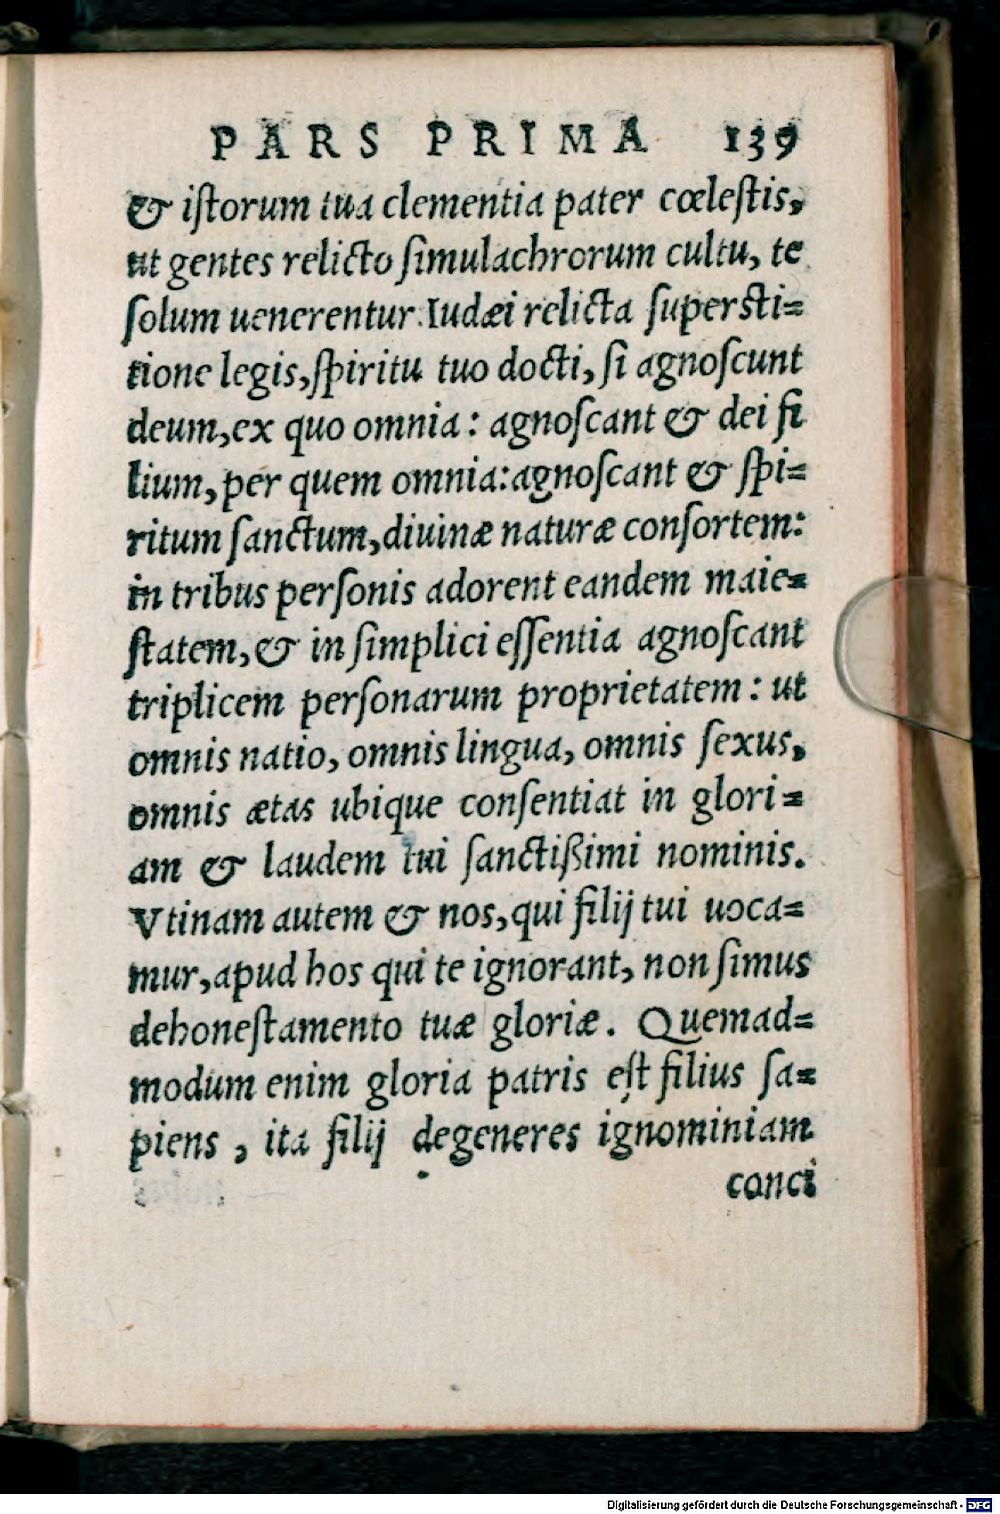 PARS PRIMA 139
& iſtorum tua clementia pater cœleſtis,
ut gentes relicto ſimulachrorum cultu, te
ſolum uenerentur. Iudæi relicta ſuperſti=
tione legis, ſpiritu tuo docti, ſi agnoſcunt
deum, ex quo omnia: agnoſcant & dei fi
lium, per quem omnia: agnoſcant & ſpi=
ritum ſanctum, diuinæ naturæ conſortem:
in tribus perſonis adorent eandem maie=
ſtatem, & in ſimplici eſſentia agnoſcant
triplicem perſonarum proprietatem: ut
omnis natio, omnis lingua, omnis ſexus,
omnis ætas ubique conſentiat in glori=
am & laudem tui ſanctißimi nominis.
Vtinam autem & nos, qui filij tui uoca=
mur, apud hos qui te ignorant, non ſimus
dehoneſtamento tuæ gloriæ. Quemad=
modum enim gloria patris eſt filius ſa=
piens, ita filij degeneres ignominiam
conci
Digitalisierung gefördert durch die Deutsche Forschungsgemeinschaft - DFG